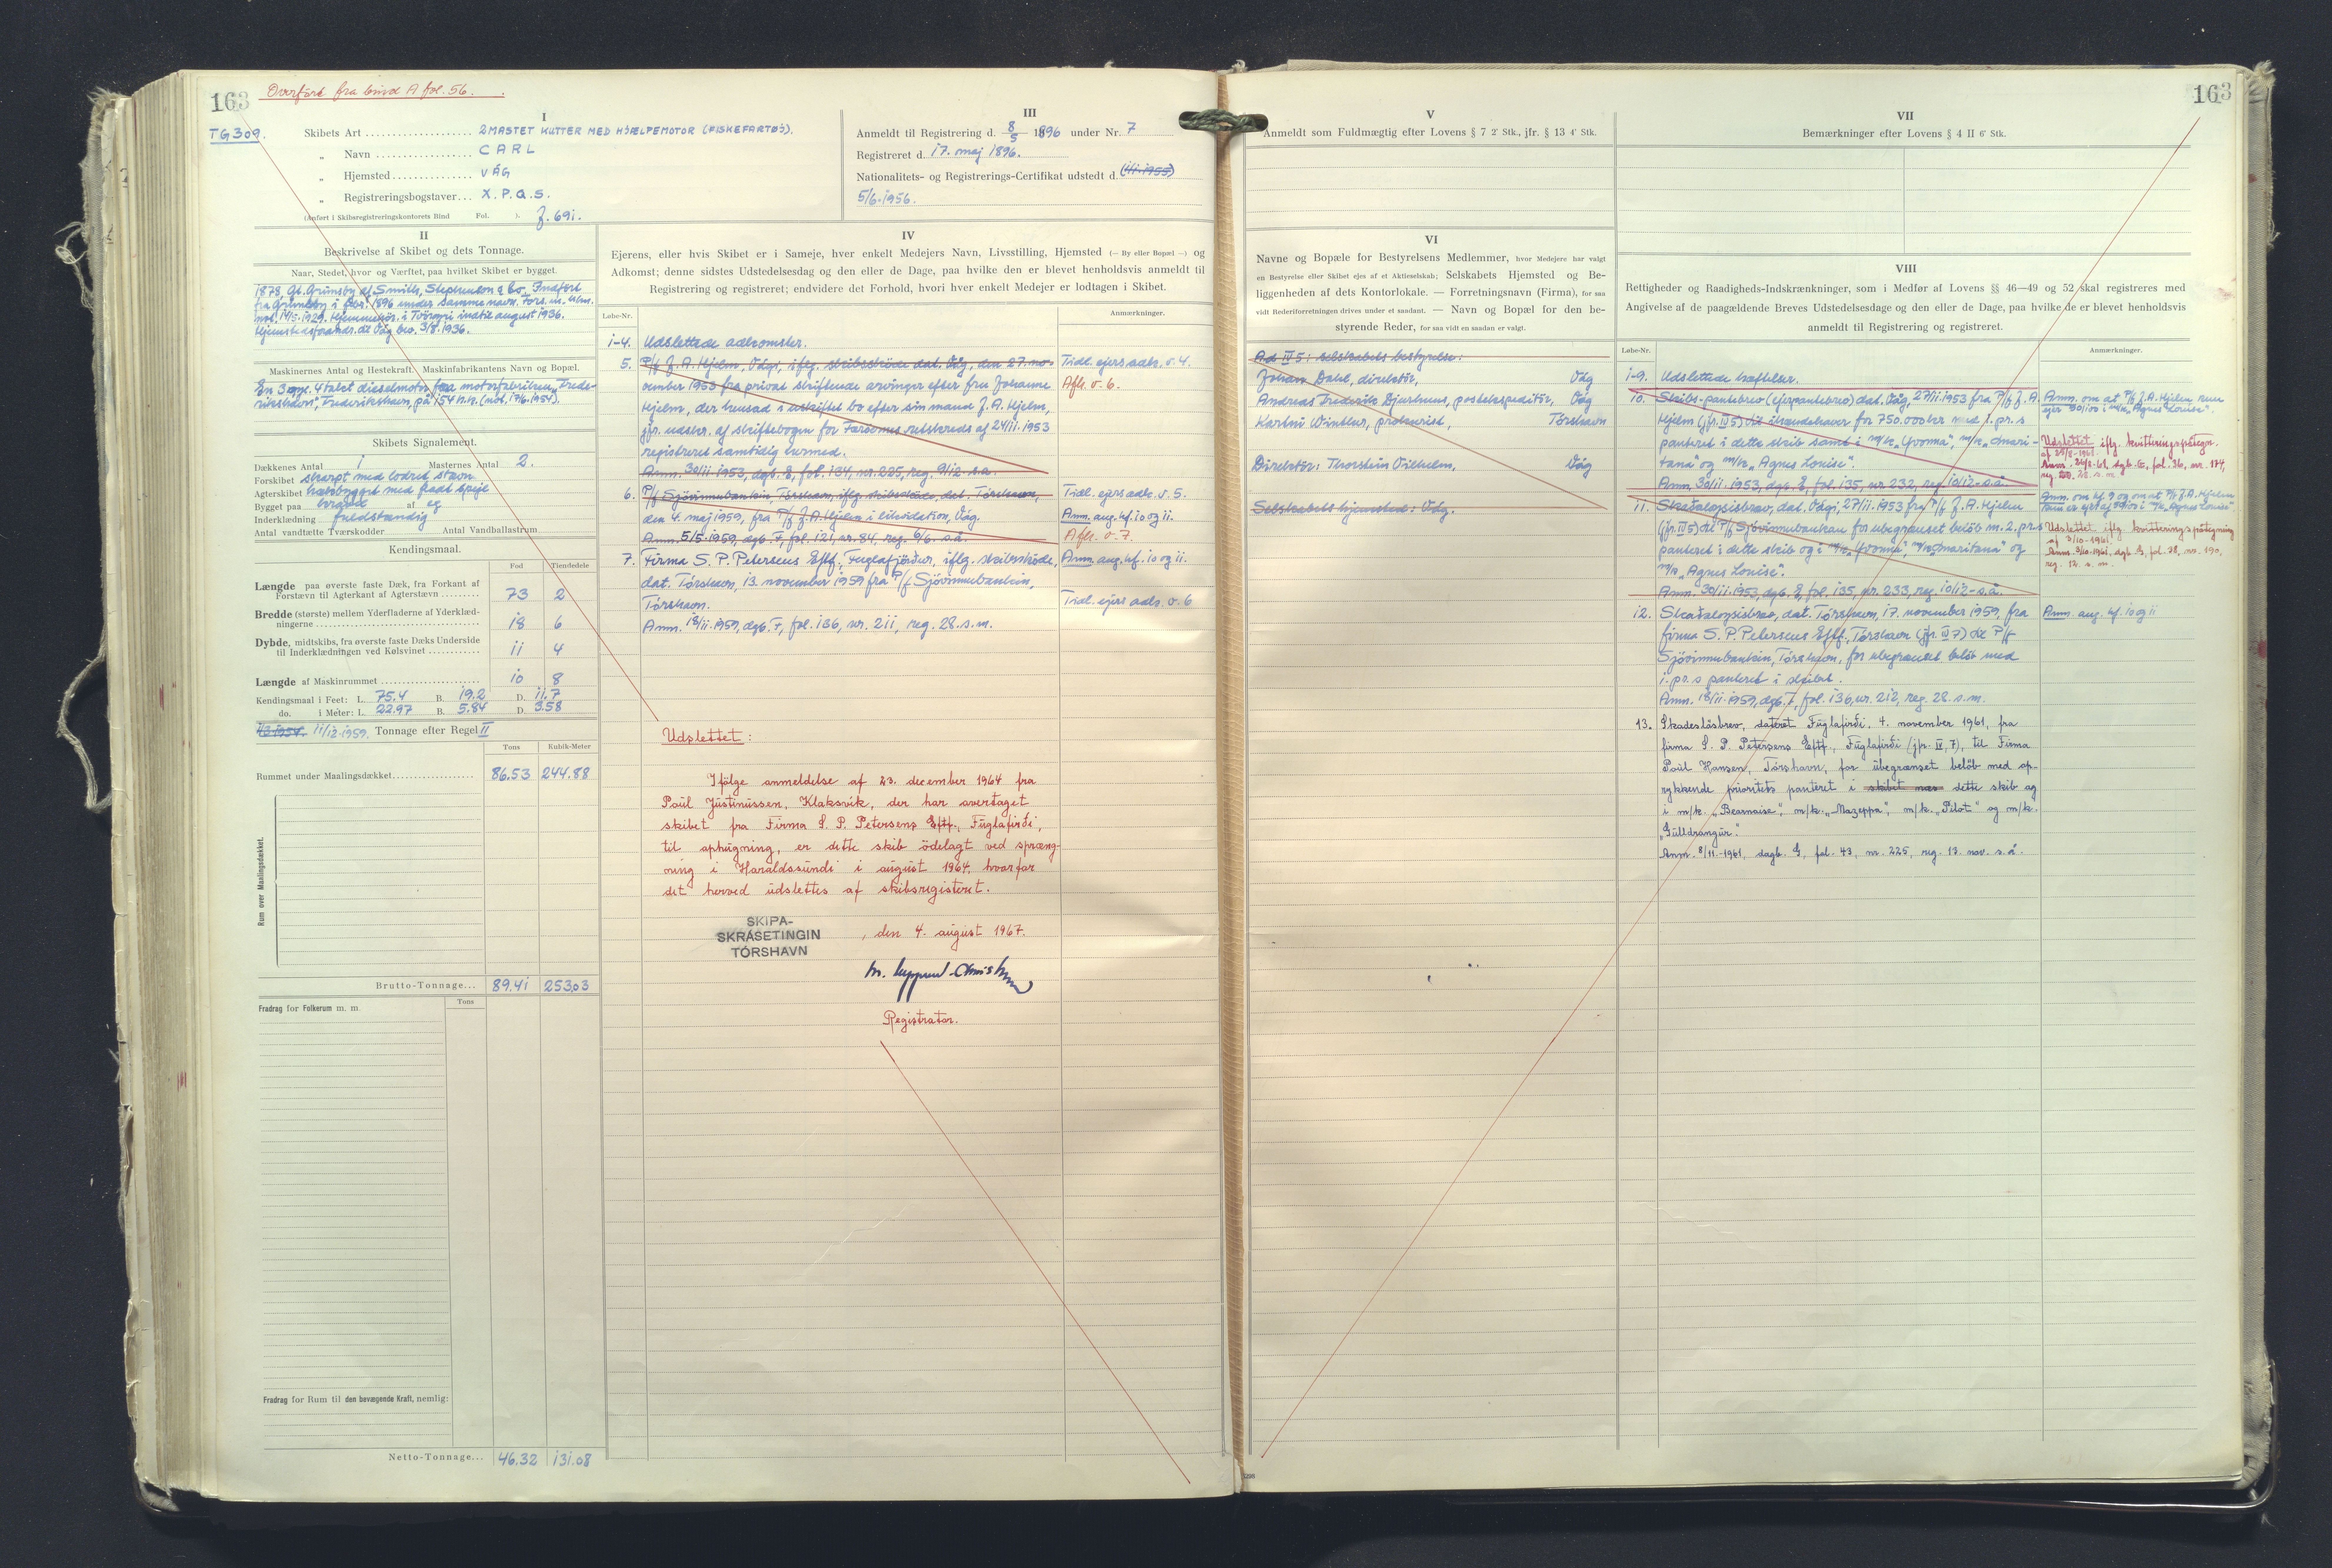 163
Overført fra bind A fol. 56.
TG 309.
I
Skibets Art 2MASTET KUTTER MED HJÆLPEMOTOR (FISKEFARTØJ).
„ Navn CARL
„ Hjemsted VÁG
„ Registreringsbogstaver X.P.Q.S.
(Anført i Skibsregistreringskontorets Bind Fol. ).
III
Anmeldt til Registrering d. 8/5 1896 under Nr. 7
Registreret d. 17. maj 1896.
Nationalitets- og Registrerings-Certifikat udstedt d. (1/1-1955)
5/6-1956.
II
Beskrivelse af Skibet og dets Tonnage.
Naar, Stedet, hvor og Værftet, paa hvilket Skibet er bygget.
1878 Gt. Grimsby af Smith, Stephenson & Co. Indført
fra Grimsby i febr. 1896 under samme navn.
not. 14/5-1929. Hjemmehør. i Tvøroyri indtil august 1936.
Maskinernes Antal og Hestekraft. Maskinfabrikantens Navn og Bopæl.
En 4takt dieselmotor fra motorfabriken „Frede-
rikshavn", Frederikshavn, på 154 h.k. (not. 17/6-1954).
Skibets Signalement.
Dækkenes Antal 1 Masternes Antal 2.
Forskibet skarpt med lodret stævn
Agterskibet hækbygget med fladt spejl
Bygget paa kravel af eg
Inderklædning fuldstændig
Antal vandtætte Tværskodder Antal Vandballastrum
Kendingsmaal.
Fod Tiendedele
Længde paa øverste faste Dæk, fra Forkant af
Forstævn til Agterkant af Agterstævn 73 2
Bredde (største) mellem Yderfladerne af Yderklæd-
ningerne 18 6
Dybde, midtskibs, fra øverste faste Dæks Underside
til Inderklædningen ved Kølsvinet 11 4
Længde af Maskinrummet 10 8
Kendingsmaal i Feet: L. 75.4 B. 19.2 D. 11.7
do. i Meter: L. 22.97 B. 5.84 D. 3.58
11/12-1959. Tonnage efter Regel II
Tons Kubik-Meter
Rummet under Maalingsdækket 86.53 244.88
Rum over Maalingsdækket.
Brutto-Tonnage... 89.41 253.03
Fradrag for Folkerum m. m. Tons
Fradrag for Rum til den bevægende Kraft, nemlig:
Netto-Tonnage... 46.32 131.08
IV
Ejerens, eller hvis Skibet er i Sameje, hver enkelt Medejers Navn, Livsstilling, Hjemsted (— By eller Bopæl —) og
Adkomst; denne sidstes Udstedelsesdag og den eller de Dage, paa hvilke den er blevet henholdsvis anmeldt til
Registrering og registreret; endvidere det Forhold, hvori hver enkelt Medejer er lodtagen i Skibet.
Løbe-Nr. Anmærkninger.
1-4. Udslettede adkomster.
5. P/f J. A. Hjelm, Vági, iflg. skibsskøde dat. Vág, den 27. no- Tidl. ejers adk. v. 4.
vember 1953 fra privat skiftende arvinger efter fru Johanne Afl. v. 6.
Hjelm, der hensad i uskiftet bo efter sin mand J. A. Hjelm,
jfr. udskr. af skiftebogen for Færøernes retskreds af 24/11. 1953
registreret samtidig hermed.
Anm. 30/11-1953, dgb. E, fol. 134, nr. 225, reg. 9/12 s.a.
6. P/f Sjóvinnubankin, Tórshavn, iflg. skibsskøde, dat. Tórshavn, Tidl. ejers adk. v. 5.
den 4. maj 1959, fra P/f J. A. Hjelm i likvidation, Vág. Anm. ang. hf. 10 og 11.
Anm. 5/5-1959, dgb. F, fol. 121, nr. 84, reg. 9/6. s.å. Afl. v. 7.
7. Firma S. P. Petersens Eftf., Fuglafjørður, iflg. skibsskøde, Anm. ang. hf. 10 og 11.
dat. Tórshavn, 13. november 1959 fra P/f Sjóvinnubankin,
Tórshavn. Tidl. ejers adk. v. 6
Anm. 18/11-1959, dgb. F, fol. 136, nr. 211, reg. 28. s.m.
Udslettet:
Ifølge anmeldelse af 23. december 1964 fra
Poul Justinussen, Klaksvík, der har overtaget
skibet fra Firma S. P. Petersens Eftf., Fuglafirði,
til ophugning, er dette skib ødelagt ved spræng-
ning i Haraldssundi i august 1964, hvorfor
det herved udslettes af skibsregisteret.
SKIPA-
SKRÁSETINGIN
TÓRSHAVN
, den 4. august 1967.
Registrator.
163
V
Anmeldt som Fuldmægtig efter Lovens § 7 2' Stk., jfr. § 13 4' Stk.
VI
Navne og Bopæle for Bestyrelsens Medlemmer, hvor Medejere har valgt
en Bestyrelse eller Skibet ejes af et Aktieselskab; Selskabets Hjemsted og Be-
liggenheden af dets Kontorlokale. — Forretningsnavn (Firma), for saa
vidt Rederiforretningen drives under et saadant. — Navn og Bopæl for den be-
styrende Reder, for saa vidt en saadan er valgt.
Ad IV 5: selskabets bestyrelse:
Johan Dahl, direktør, Vág
Andreas Frederik Djurhuus, postekspeditør, Vág
Karlni Winther, prokurist, Tórshavn
Direktør: Thorstein Vilhelm, Vág
Selskabets hjemsted: Vág.
VII
Bemærkninger efter Lovens § 4 II 6' Stk.
VIII
Rettigheder og Raadigheds-Indskrænkninger, som i Medfør af Lovens §§ 46—49 og 52 skal registreres med
Angivelse af de paagældende Breves Udstedelsesdage og den eller de Dage, paa hvilke de er blevet henholdsvis
anmeldt til Registrering og registreret.
Løbe-Nr. Anmærkninger.
1-9. Udslettede hæftelser.
10. Skibs-pantebrev (ejerpantebrev) dat. Vág, 27/11 1953 fra P/f J. A.
Hjelm (jfr. IV 5) til ihændehaver for 750.000 kr med 1. pr. s
panteret i dette skib samt i m/k „Yvonna", m/k „Smari-
tana" og m/k „Agnes Louise".
Anm. 30/11-1953, dgb. E, fol. 135, nr. 232, reg. 10/12-s.å.
Anm. om at P/f J. A. Hjelm kun
ejer 30/100 i m/k „Agnes Louise".
Udslettet iflg. kvitteringspåtegn.
11. Skaðaloysisbræv, dat. Vági, 27/11 1953 fra P/f J. A. Hjelm
(jfr. IV 5) til P/f Sjóvinnubankan for ubegrænset beløb m. 2. pr. s
panteret i dette skib og i m/k „Yvonna" m/k „Smaritana" og
m/k „Agnes Louise".
Anm. 30/11-1953, dgb. E, fol. 135, nr. 233, reg. 10/12-s.å.
Udslettet iflg. kvitteringspåtegning
af 3/10-1961,
12. Skaðaloysisbræv, dat. Tórshavn, 17. november 1959, fra Anm. ang. hf. 10 og 11
firma S. P. Petersens Eftf., Tórshavn (jfr. IV 7) til P/f
Sjóvinnubankin, Tórshavn, for ubegrænset beløb med
1. pr. s panteret i skibet.
Anm. 18/11-1959, dgb. F, fol. 136, nr. 212, reg. 28. s.m.
13. Skadesløsbrev, dateret Fuglafirði, 4. november 1961, fra
firma S. P. Petersens Eftf., Fuglafirði (jfr. IV, 7), til Firma
Poul Hansen, Tórshavn, for ubegrænset beløb med op-
rykkende prioritets panteret i dette skib og
i m/k. „Bearnaise", m/k. „Mazeppa", m/k. „Pilot" og m/k.
„Gulldrangur".
Anm. 8/11-1961, dagb. G, fol. 43, nr. 225, reg. 13. nov. s.å.